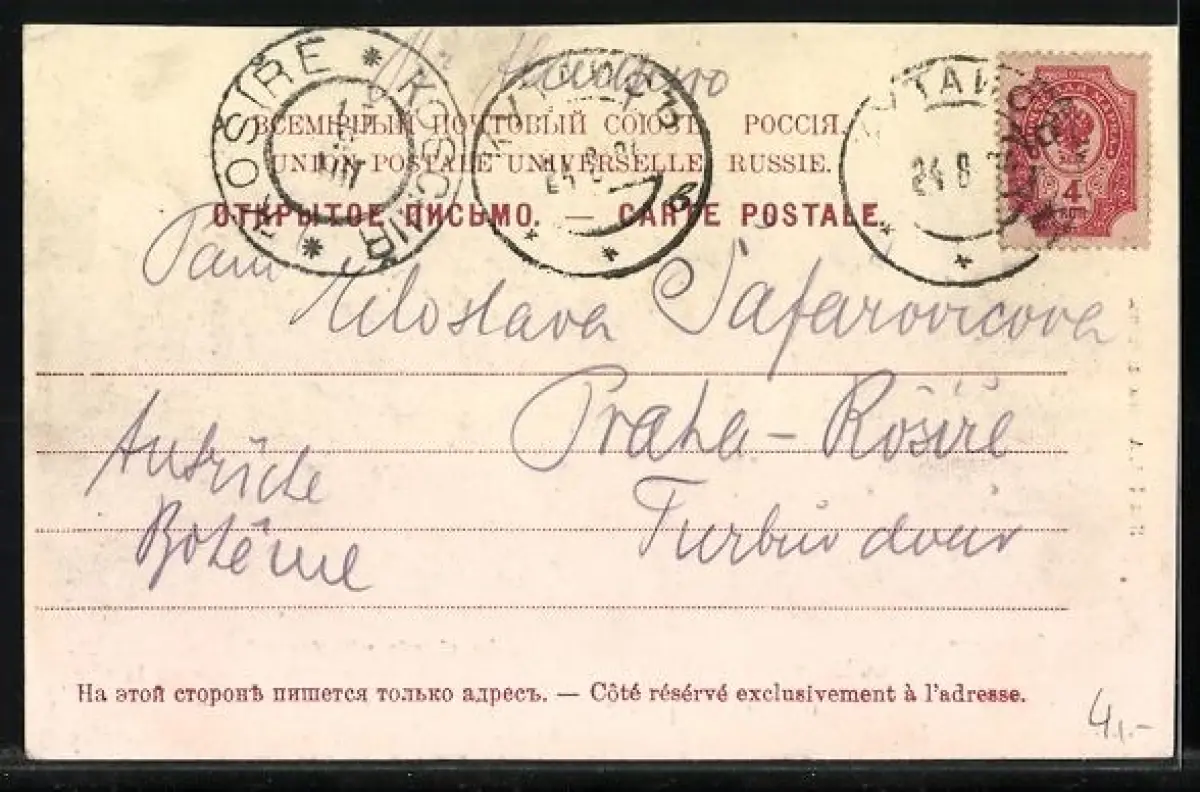 ВСЕМІРНЫЙ ПОЧТОВЫЙ СОЮЗЪ. РОССІЯ.
UNION POSTALE UNIVERSELLE. RUSSIE.
ОТКРЫТОЕ ПИСЬМО. — CARTE POSTALE.
KOŠÍŘE * KOSCHIŘ *
24 8
КУТАИСЪ
24 8
4
КОП.
Paní
Miloslava Šafarovicova
Praha - Košíře
Autriche
Turbův dvůr
Bohême
На этой сторонѣ пишется только адресъ. — Côté résérvé exclusivement à l'adresse.
4,-